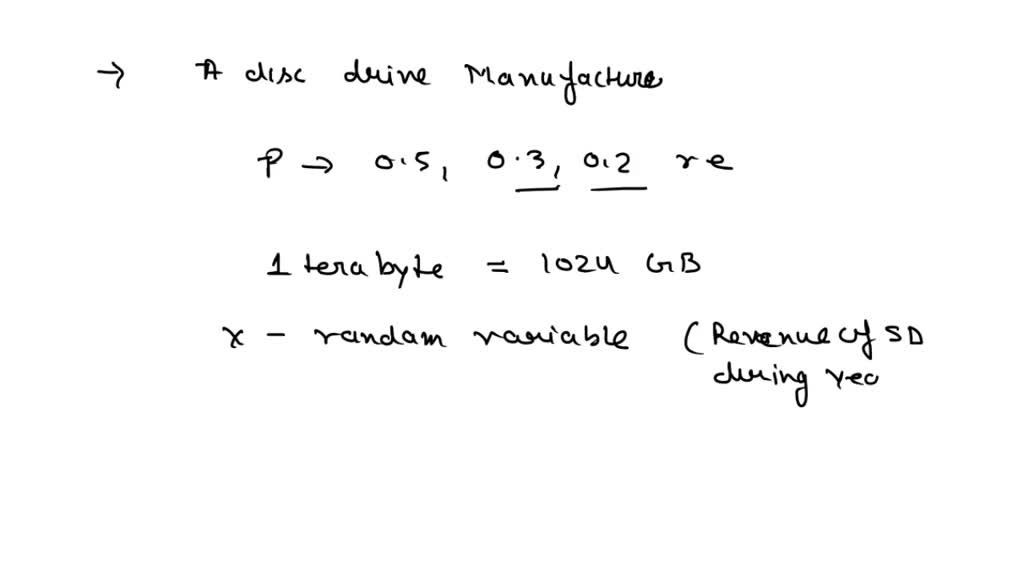 → A disc drive Manufacture
P → 0.5, 0.3, 0.2 re
1 terabyte = 1024 GB
x - random variable (Revenue of SD
during yea